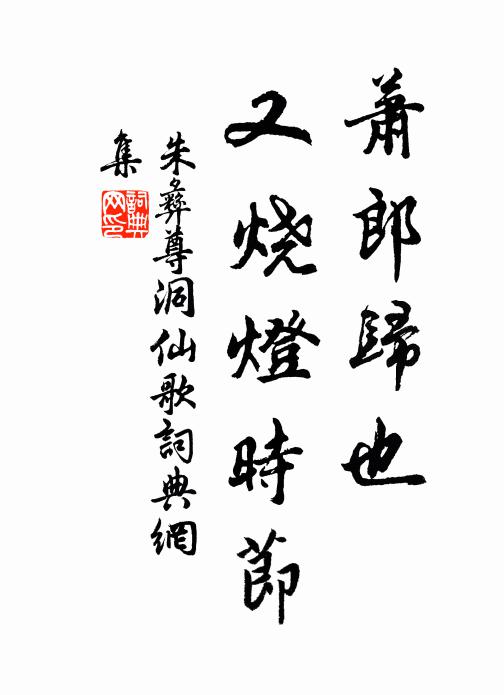 蕭郎歸也
又燒燈時節
朱彝尊洞仙歌詞典網
集
詞典网印